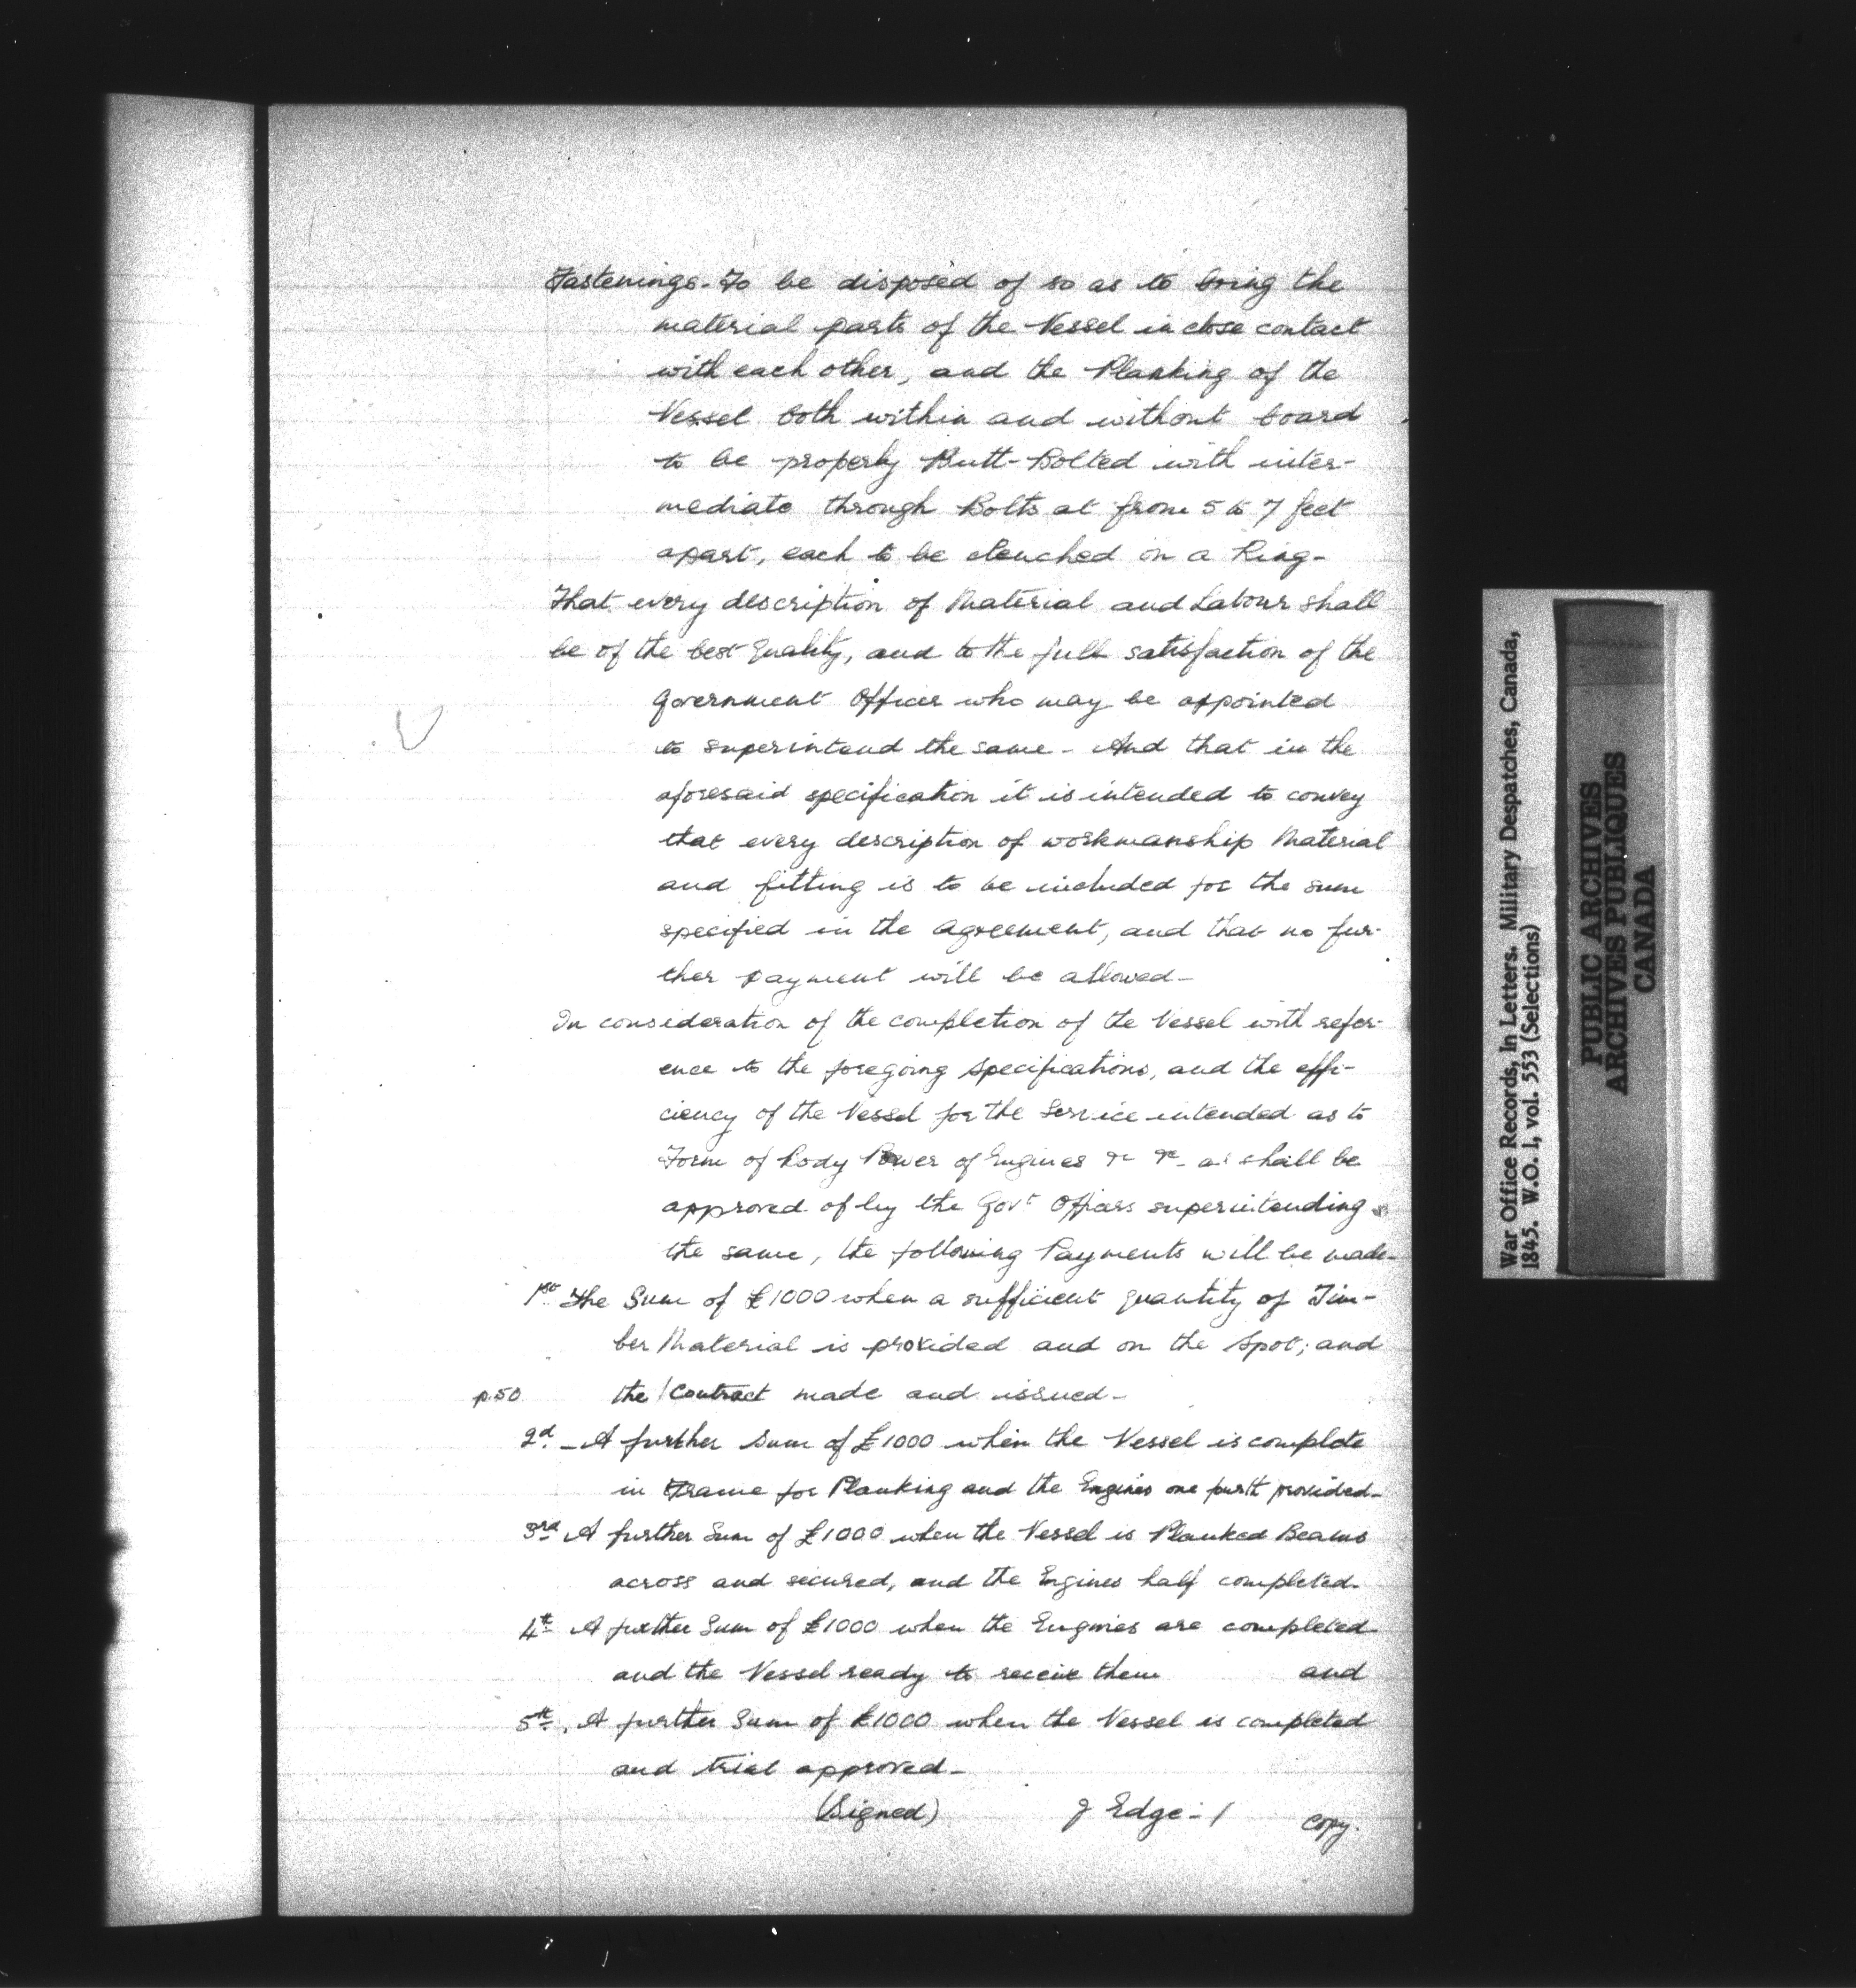 Fastenings - To be disposed of so as to bring the
material parts of the Vessel in close contact
with each other, and the Planking of the
Vessel both within and without board
to be properly Butt-Bolted with inter-
mediate through Bolts at from 5 to 7 feet
apart, each to be clenched on a Ring-
That every description of Material and Labour shall
be of the best Quality, and to the full satisfaction of the
Government Officer who may be appointed
to superintend the same - And that in the
aforesaid specification it is intended to convey
that every description of workmanship Material
and fitting is to be included for the sum
specified in the Agreement, and that no fur-
ther payment will be allowed-
In consideration of the completion of the Vessel with refer-
ence to the foregoing Specifications, and the effi-
ciency of the Vessel for the Service intended as to
Form of Body Power of Engines &c &c - as shall be
approved of by the Govt Officers superintending
the same, the following Payments will be made-
1st The Sum of £1000 when a sufficient quantity of Tim-
ber Material is provided and on the Spot; and
p.50 the / Contract made and issued-
2d - A further Sum of £1000 when the Vessel is complete
in Frame for Planking and the Engines one fourth provided-
3rd A further Sum of £1000 when the Vessel is Planked Beams
across and secured, and the Engines half completed-
4th A further Sum of £1000 when the Engines are completed
and the Vessel ready to receive them and
5th. A further Sum of £1000 when the Vessel is completed
and trial approved-
(Signed) J Edge - /
Copy.
War Office Records, In Letters. Military Despatches, Canada,
1845. W.O. 1, vol. 553 (Selections)
PUBLIC ARCHIVES
ARCHIVES PUBLIQUES
CANADA